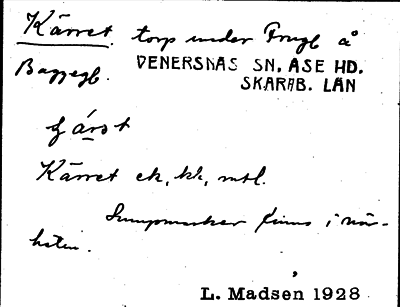 Kärret. torp under Frugl å
Bagzegl. VÄNERSNÄS SN. ÅSE HD.
SKARAB. LÄN
Kärret ek, kk, mtl.
Sumpmarker finns i när-
heten.
L. Madsen 1928